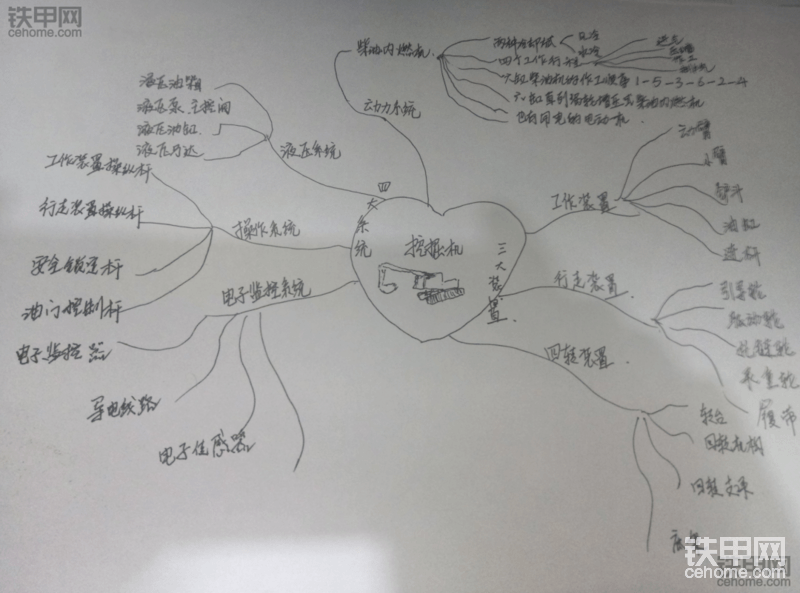 铁甲网
cehome.com
柴油内燃机
两种冷却
风冷
水冷
四个工作行程
六缸柴油机的作工顺序 1-5-3-6-2-4
动力系统
液压油箱
液压泵、主控阀
液压油缸
液压马达
液压系统
工作装置操纵杆
行走装置操纵杆
安全锁定杆
油门控制杆
操作系统
电子监控系统
电子监控器
导电线路
电子传感器
四大系统
挖掘机
三大装置
工作装置
动臂
斗臂
铲斗
油缸
连杆
行走装置
引导轮
驱动轮
托链轮
承重轮
履带
回转装置
转台
回转机构
回转支承
铁甲网
cehome.com